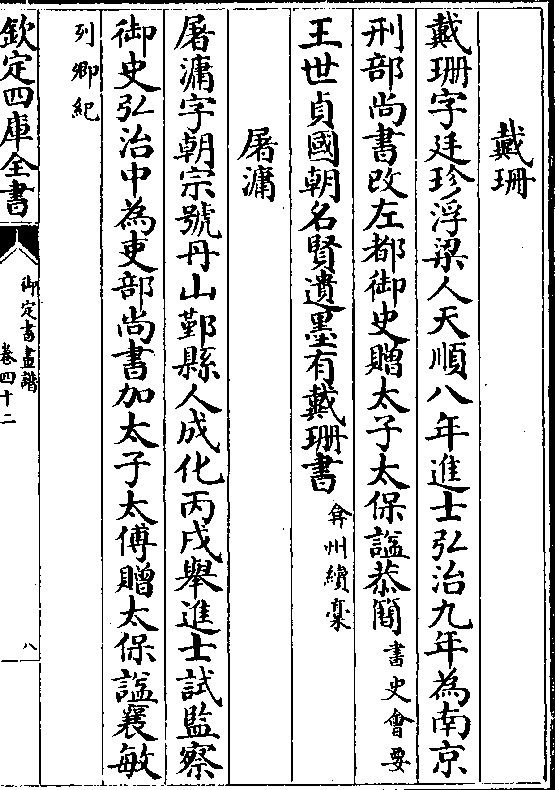 戴珊
戴珊字廷珍浮梁人天順八年進士弘治九年為南京
刑部尚書改左都御史贈太子太保諡恭簡書史會要
王世貞國朝名賢遺墨有戴珊書弇州續稾
屠滽
屠滽字朝宗號丹山鄞縣人成化丙戌舉進士試監察
御史弘治中為吏部尚書加太子太傅贈太保諡襄敏
列卿紀
欽定四庫全書
御定書畫譜
卷四十二
八